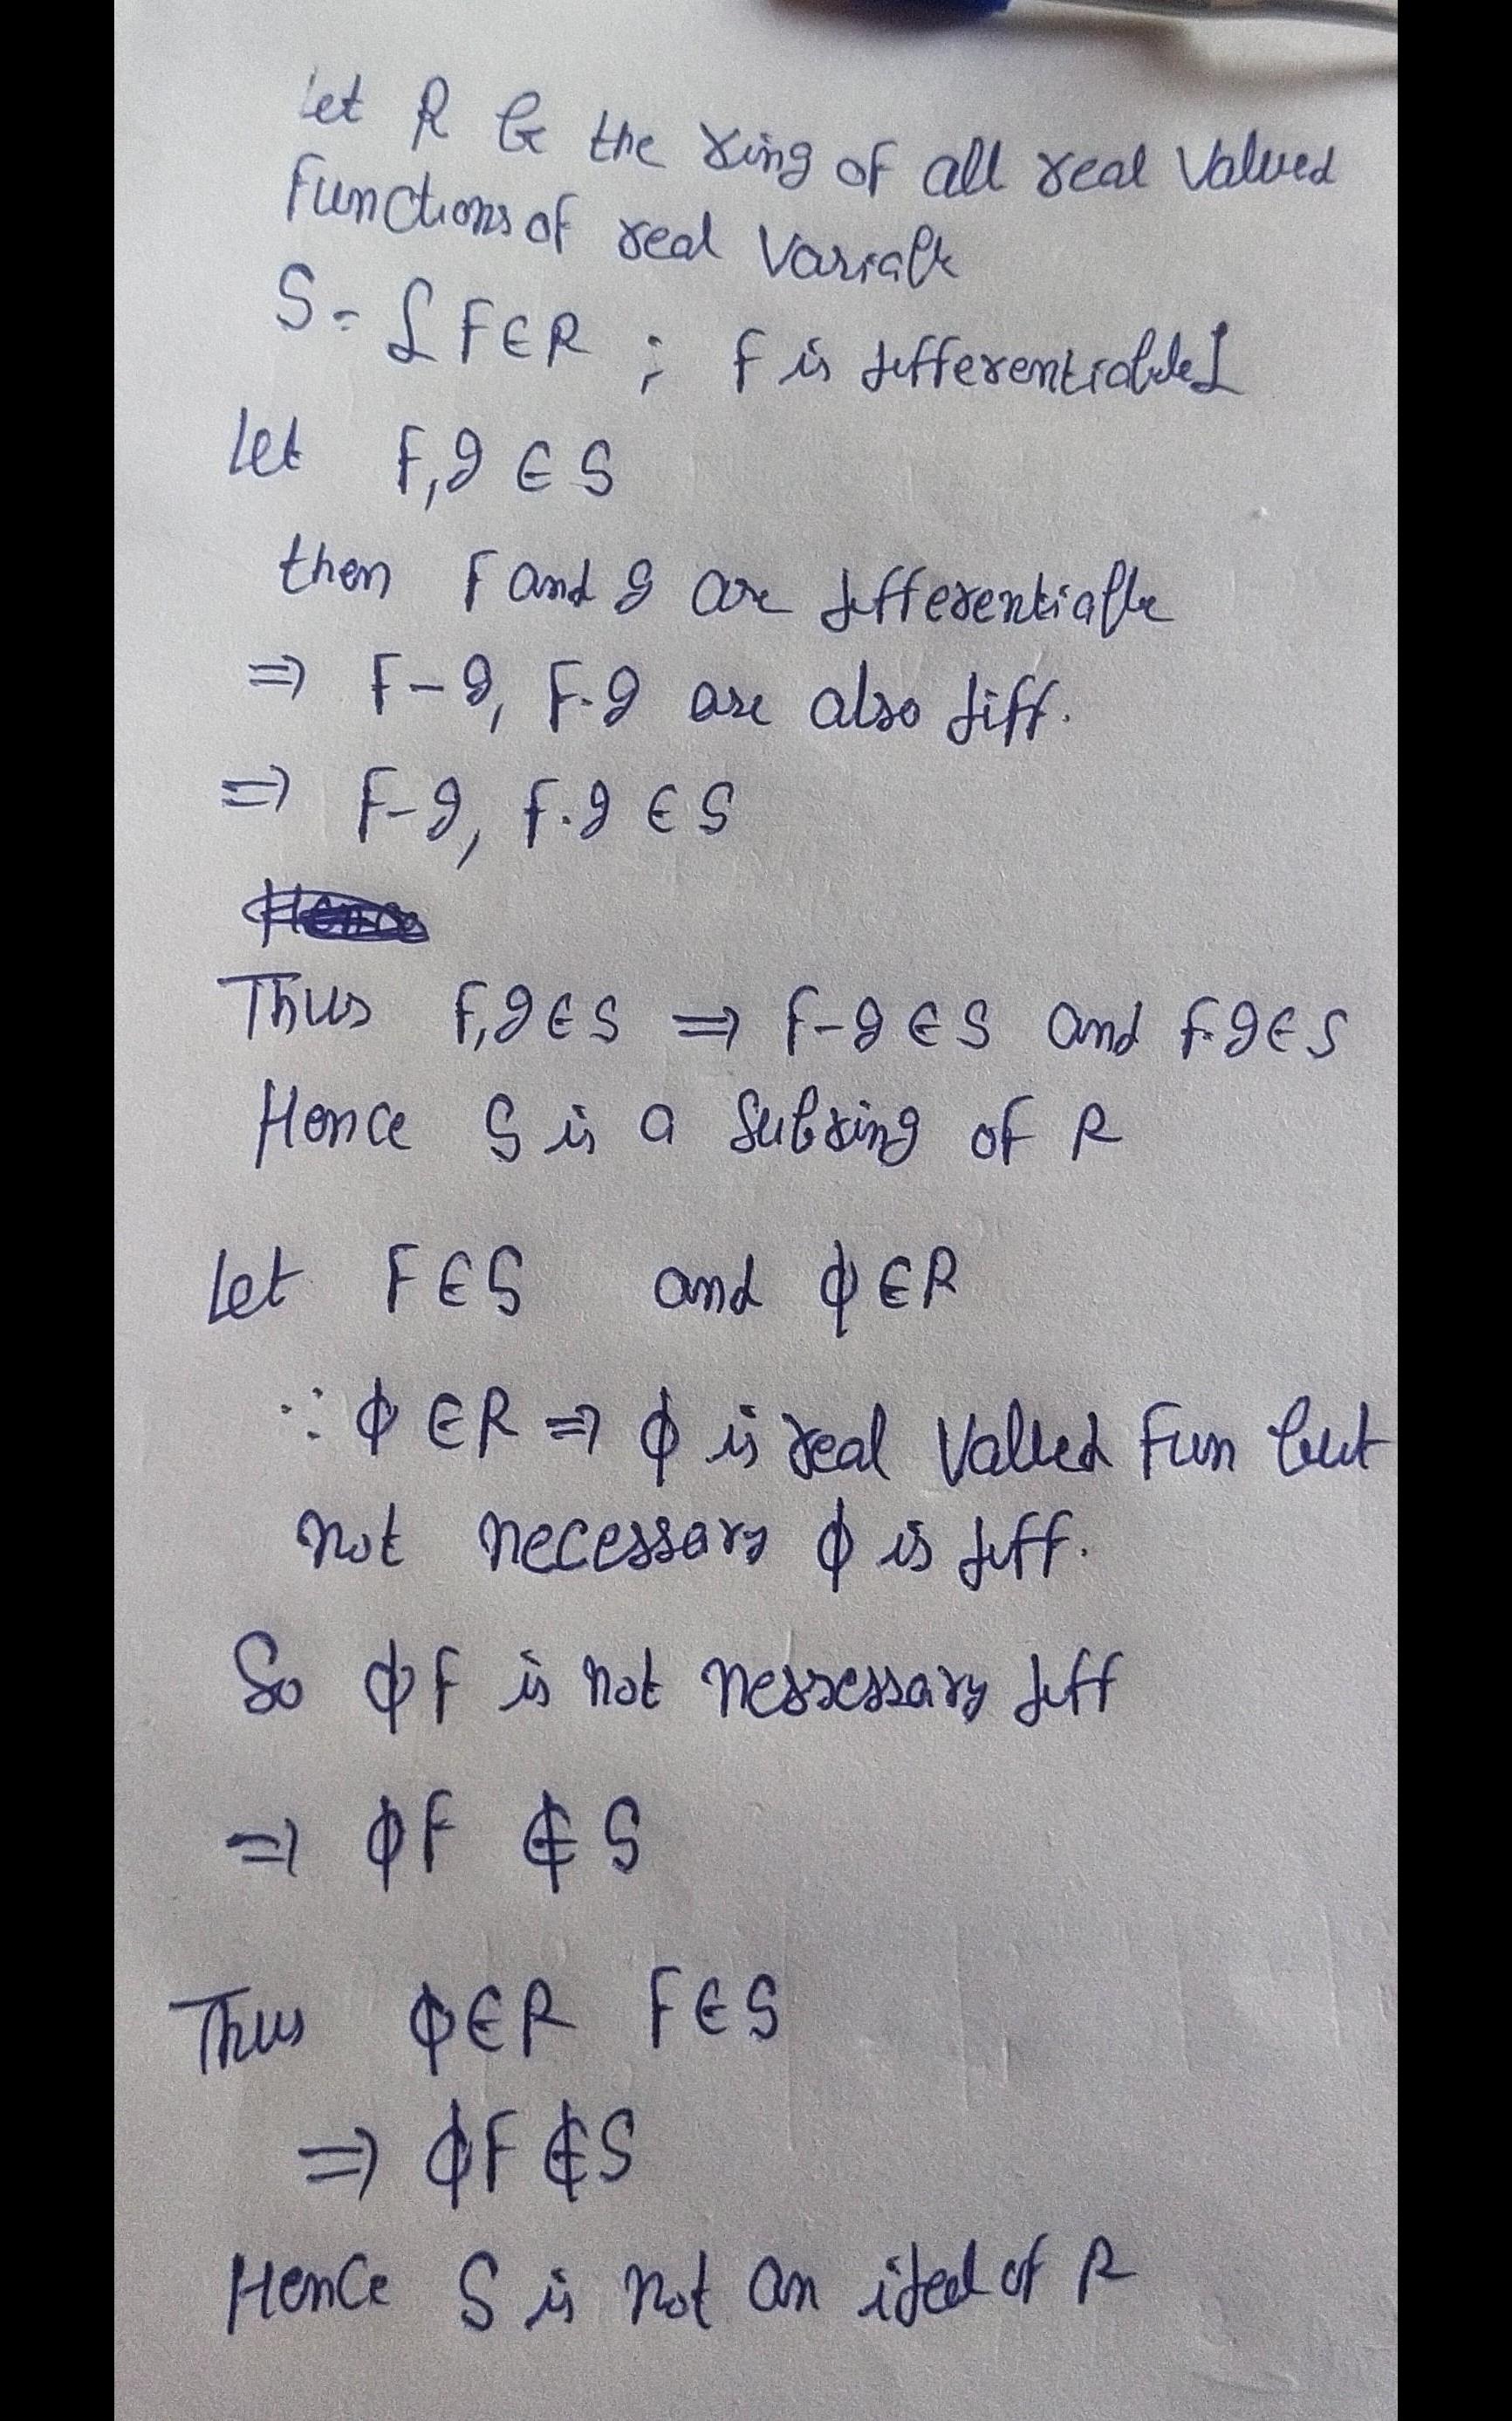 Let R be the ring of all real valued
functions of real variable
S = { F ∈ R ; f is differentiable }
Let F, g ∈ S
then F and g are differentiable
⇒ F - g, F.g are also diff.
⇒ F - g, f.g ∈ S
Thus F, g ∈ S ⇒ f - g ∈ S and f.g ∈ S
Hence S is a subring of R
Let F ∈ S and ϕ ∈ R
∵ ϕ ∈ R ⇒ ϕ is real valued Fun but
not necessary ϕ is diff.
So ϕF is not nessessary diff
⇒ ϕF ∉ S
Thus ϕ ∈ R F ∈ S
⇒ ϕF ∉ S
Hence S is not an ideal of R